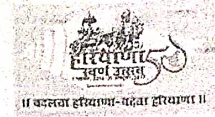 हरियाणा
स्वर्ण उत्सव
॥ बदलता हरियाणा-बढ़ता हरियाणा ॥